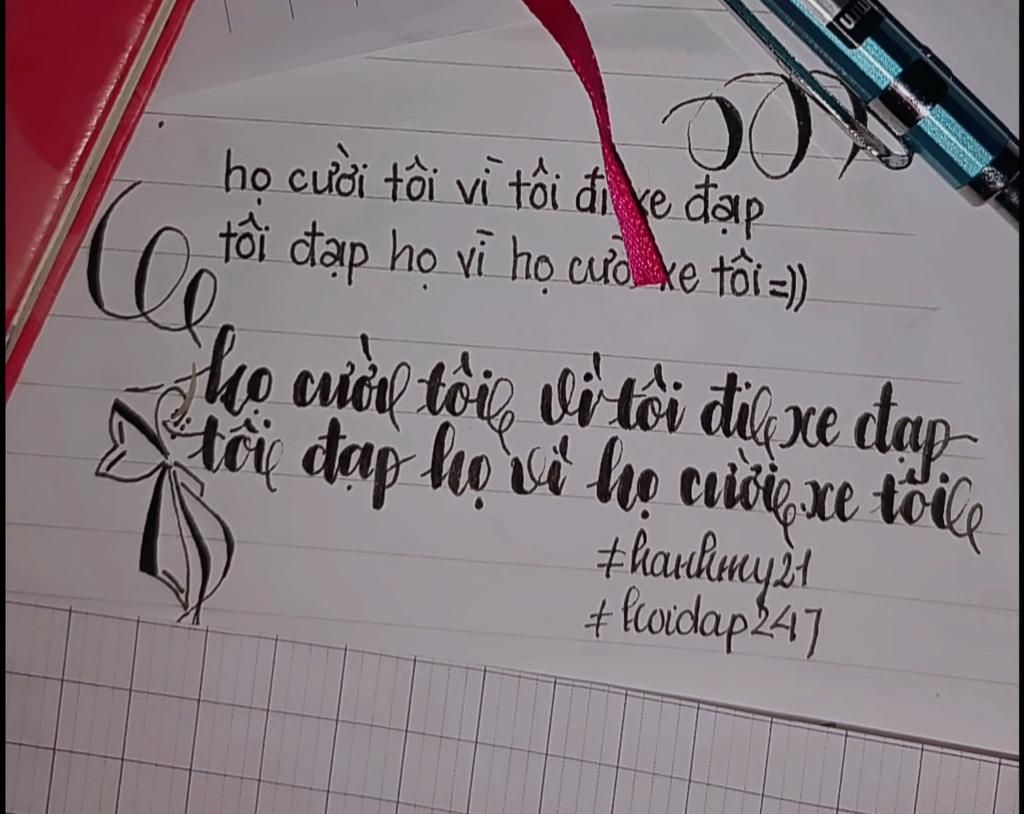 họ cười tôi vì tôi đi xe đạp
tôi đạp họ vì họ cười xe tôi=))
họ cười tôi vì tôi đi xe đạp
tôi đạp họ vì họ cười xe tôi
#hanhmy21
#koidap247